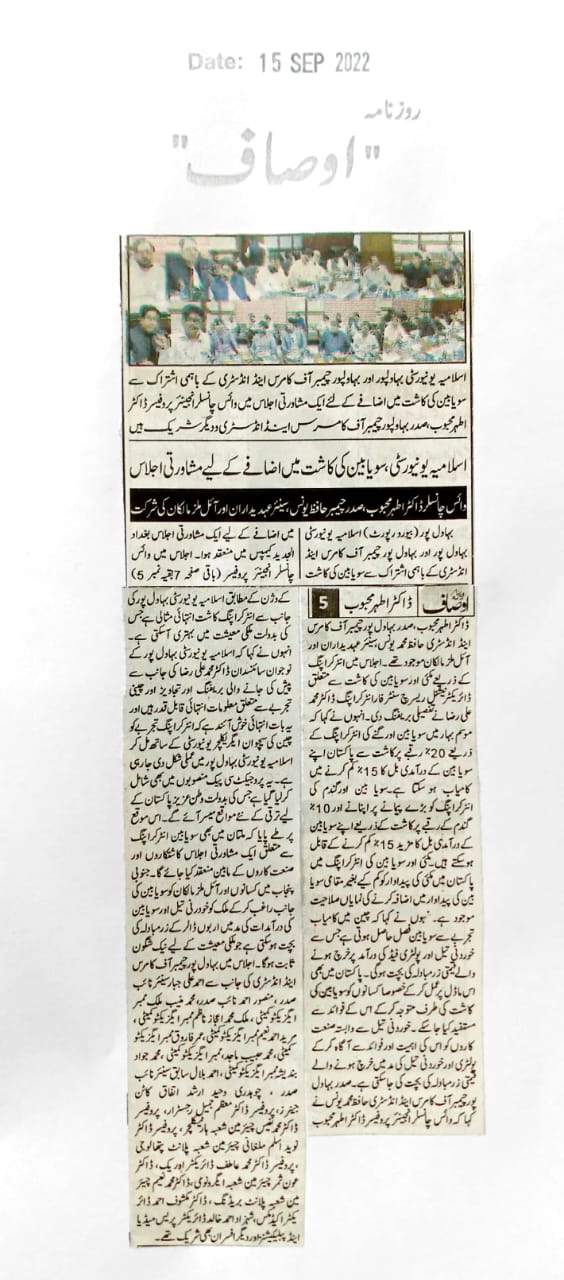 Date: 15 SEP 2022
روزنامہ
"اوصاف"
اسلامیہ یونیورسٹی بہاولپور اور بہاولپور چیمبر آف کامرس اینڈ انڈسٹری کے باہمی اشتراک سے
سویابین کی کاشت میں اضافے کے لئے ایک مشاورتی اجلاس میں وائس چانسلر انجینئر پروفیسر ڈاکٹر
اطہر محبوب، صدر بہاولپور چیمبر آف کامرس اینڈ انڈسٹری و دیگر شریک ہیں
اسلامیہ یونیورسٹی، سویابین کی کاشت میں اضافے کے لیے مشاورتی اجلاس
وائس چانسلر ڈاکٹر اطہر محبوب، صدر چیمبر حافظ یونس، سینئر عہدیداران اور آئل ملز مالکان کی شرکت
بہاول پور (بیورو رپورٹ) اسلامیہ یونیورسٹی
بہاول پور اور بہاول پور چیمبر آف کامرس اینڈ
انڈسٹری کے باہمی اشتراک سے سویابین کی کاشت
میں اضافے کے لیے ایک مشاورتی اجلاس بغداد
الجدید کیمپس میں منعقد ہوا۔ اجلاس میں وائس
چانسلر انجینئر پروفیسر (باقی صفحہ 7 بقیہ نمبر 5)
اوصاف ڈاکٹر اطہر محبوب 5
ڈاکٹر اطہر محبوب، صدر بہاول پور چیمبر آف کامرس
اینڈ انڈسٹری حافظ محمد یونس، سینئر عہدیداران اور
آئل ملز مالکان موجود تھے۔ اجلاس میں انٹر کراپنگ
کے ذریعے مکئی اور سویابین کی کاشت سے متعلق
ڈائریکٹر نیشنل ریسرچ سنٹر فار انٹر کراپنگ ڈاکٹر محمد
علی رضا نے تفصیلی بریفنگ دی۔ انہوں نے کہا کہ
موسم بہار میں سویابین اور گنے کی انٹر کراپنگ کے
ذریعے 20٪ رقبے پر کاشت سے پاکستان اپنے
سویابین کے درآمدی بل کا 15٪ کم کرنے میں
کامیاب ہو سکتا ہے۔ سویا بین اور گندم کی
انٹر کراپنگ کو بڑے پیمانے پر اپنانے اور 10٪
گندم کے رقبے پر کاشت کے ذریعے اپنے سویابین
کے درآمدی بل کا مزید 15٪ کم کرنے کے قابل
ہو سکتے ہیں۔ مکئی اور سویابین کی انٹر کراپنگ میں
پاکستان میں مکئی کی پیداوار کو کم کیے بغیر مقامی سویا
بین کی پیداوار میں اضافہ کرنے کی نمایاں صلاحیت
موجود ہے۔ انہوں نے کہا کہ چین میں کامیاب
تجربے سے سویابین فصل حاصل ہوتی ہے جس سے
خوردنی تیل اور پولٹری فیڈ کی درآمد پر خرچ ہونے
والے قیمتی زرمبادلہ کی بچت ہوگی۔ پاکستان میں بھی
اس ماڈل پر عمل کر کے خصوصاً کسانوں کو سویابین کی
کاشت کی طرف متوجہ کر کے اس کے فوائد سے
مستفید کیا جا سکے۔ خوردنی تیل سے وابستہ صنعت
کاروں کو اس کی اہمیت اور فوائد سے آگاہ کر کے
پولٹری اور خوردنی تیل کی مد میں خرچ ہونے والے
قیمتی زرمبادلہ کی بچت کی جا سکتی ہے۔ صدر بہاول
پور چیمبر آف کامرس اینڈ انڈسٹری حافظ محمد یونس نے
کہا کہ وائس چانسلر انجینئر پروفیسر ڈاکٹر اطہر محبوب
کے وژن کے مطابق اسلامیہ یونیورسٹی بہاول پور کی
جانب سے انٹر کراپنگ کاشت انتہائی مثالی ہے جس
کی بدولت ملکی معیشت میں بہتری آ سکتی ہے۔
انہوں نے کہا کہ اسلامیہ یونیورسٹی بہاول پور کے
نوجوان سائنسدان ڈاکٹر محمد علی رضا کی جانب سے
پیش کی جانے والی بریفنگ اور تجاویز اور چینی
تجربے سے متعلق معلومات انتہائی قابل قدر ہیں اور
یہ بات انتہائی خوش آئند ہے کہ انٹر کراپنگ تجربے کو
چین کی سچوان ایگریکلچر یونیورسٹی کے ساتھ مل کر
اسلامیہ یونیورسٹی بہاول پور میں عملی شکل دی جا رہی
ہے۔ یہ پروجیکٹ سی پیک منصوبوں میں بھی شامل
کر لیا گیا ہے جس کی بدولت وطن عزیز پاکستان کے
لیے ترقی کے نئے مواقع میسر آئے گے۔ اس موقع
پر طے پایا کہ ملتان میں بھی سویابین انٹر کراپنگ
سے متعلق ایک مشاورتی اجلاس کاشتکاروں اور
صنعت کاروں کے مابین منعقد کیا جائے گا۔ جنوبی
پنجاب میں کسانوں اور آئل ملز مالکان کو سویابین کی
جانب راغب کر کے ملک کو خوردنی تیل اور سویابین
کی درآمدات کی مد میں اربوں ڈالر کے زرمبادلہ کی
بچت ہو سکتی ہے جو ملکی معیشت کے لیے نیک شگون
ثابت ہوگا۔ اجلاس میں بہاول پور چیمبر آف کامرس
اینڈ انڈسٹری کی جانب سے احمد علی جبار سینئر نائب
صدر، منصور احمد نائب صدر، محمد منیب ملک ممبر
ایگزیکٹو کمیٹی، ملک محمد اعجاز ناظم ممبر ایگزیکٹو کمیٹی،
مرید احمد نعیم ممبر ایگزیکٹو کمیٹی، عمر فاروق ممبر ایگزیکٹو
کمیٹی، محمد حبیب ماجد، ممبر ایگزیکٹو کمیٹی، محمد جواد
ممبر ایگزیکٹو کمیٹی، احمد بلال سابق سینئر نائب
صدر، چوہدری وحید ارشد اتفاق کاٹن
جینرز، پروفیسر ڈاکٹر معظم جمیل رجسٹرار، پروفیسر
ڈاکٹر محمد نفیس چیئرمین شعبہ ہارٹیکلچر، پروفیسر ڈاکٹر
نوید اسلم ملغانی چیئرمین شعبہ پلانٹ پتھالوجی
، پروفیسر ڈاکٹر محمد عاطف ڈائریکٹر اورک، ڈاکٹر
عون ثمر چیئرمین شعبہ ایگرونومی، ڈاکٹر محمد نعیم چیئر
مین شعبہ پلانٹ بریڈنگ، ڈاکٹر مکشوف احمد ڈائر
یکٹر اکیڈمکس، شہزاد احمد خالد ڈائریکٹر پریس میڈیا
اینڈ پبلیکیشنز اور دیگر افسران بھی شریک تھے۔